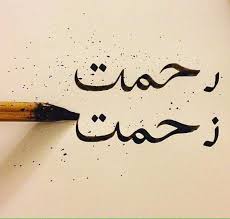 رحمت
زحمت